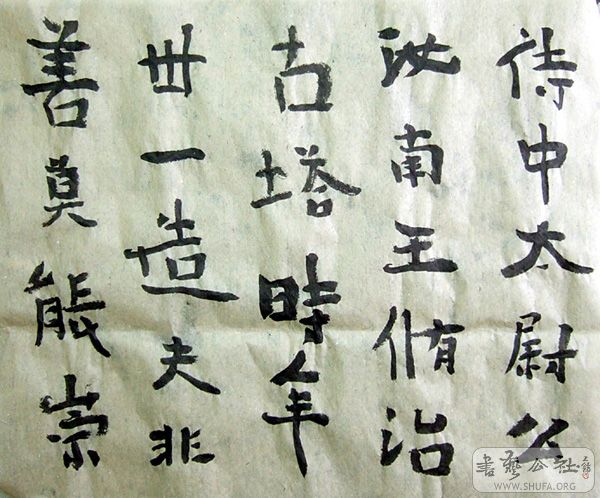 侍中太尉公
汝南王脩治
古塔時年
卅一造夫非
善莫能崇
書藝公社
WWW.SHUFA.ORG